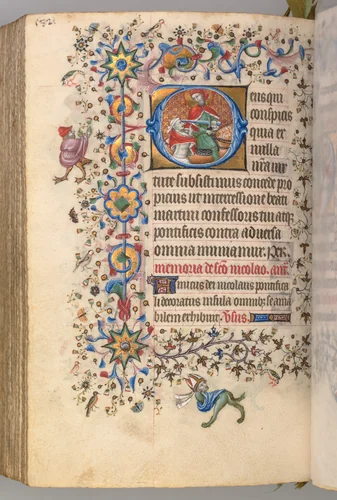 eus qui
conspicis
quia ex
nulla
nr̄a uir
tute subsistimus concede pro
picius ut intercessione beati
martini confessoris tui atq;
pontificis contra aduersa
omnia muniamur. Per.
memoria de sc̄o nicolao. an̄.
Amicus dei nicolaus pontifica
li decoratus infula omnib; se ama
bilem exhibuit. V̄sus.